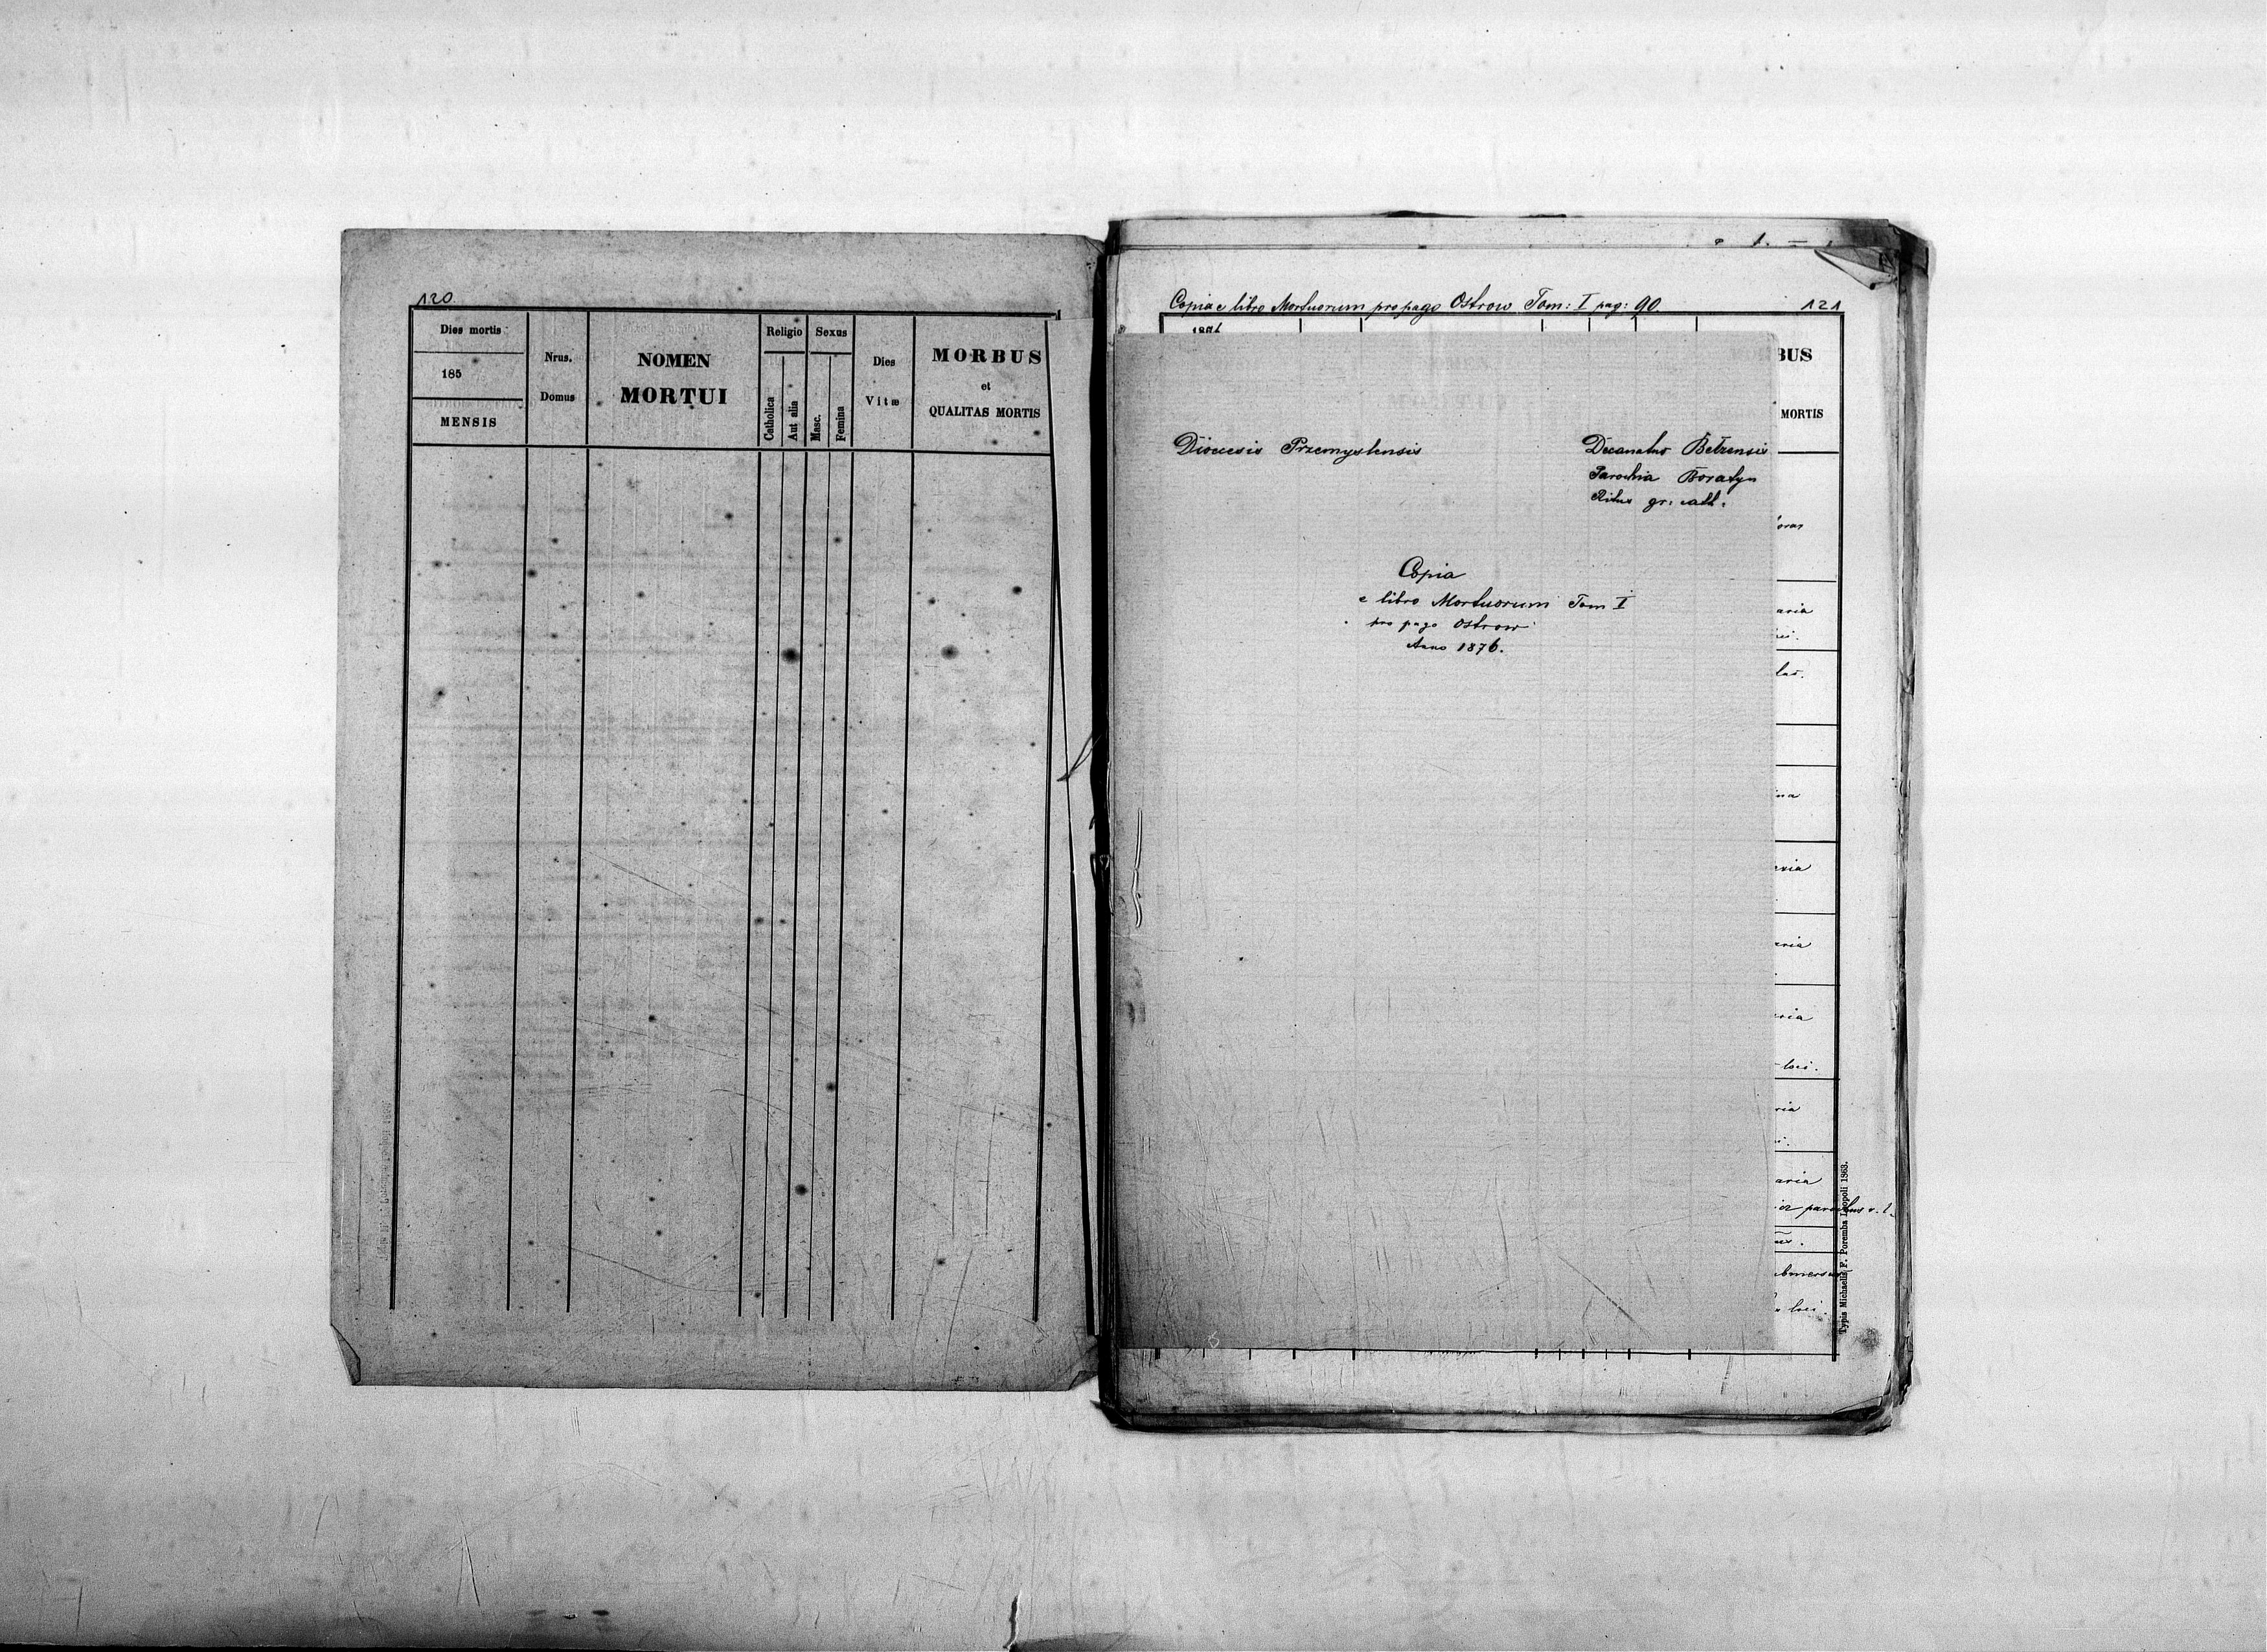 120.
Dies mortis
185
MENSIS
Nrus.
Domus
NOMEN
MORTUI
Religio
Catholica
Aut alia
Sexus
Masc.
Femina
Dies
Vitæ
MORBUS
et
QUALITAS MORTIS
Copia e libro Mortuorum pro pago Ostrow Tom: I pag: 90.
121
1876
BUS
MORTIS
Dioecesis Przemyslensis
Decanatus Bełzensis
Parochia Boratyn
Ritus gr: cath:
Copia
e libro Mortuorum Tom I
pro pago Ostrow
Anno 1876.
aria
aria
loci.
aria
parochus
loci.
Typis Michaelis F. Poremba Leopoli 1863.